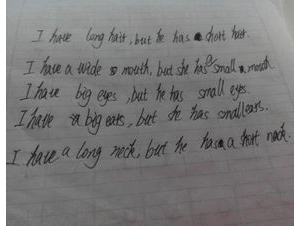 I have long hair, but he has short hair.
I have a wide mouth, but she has a small mouth.
I have big eyes, but he has small eyes.
I have big ears, but she has small ears.
I have a long neck, but he has a short neck.